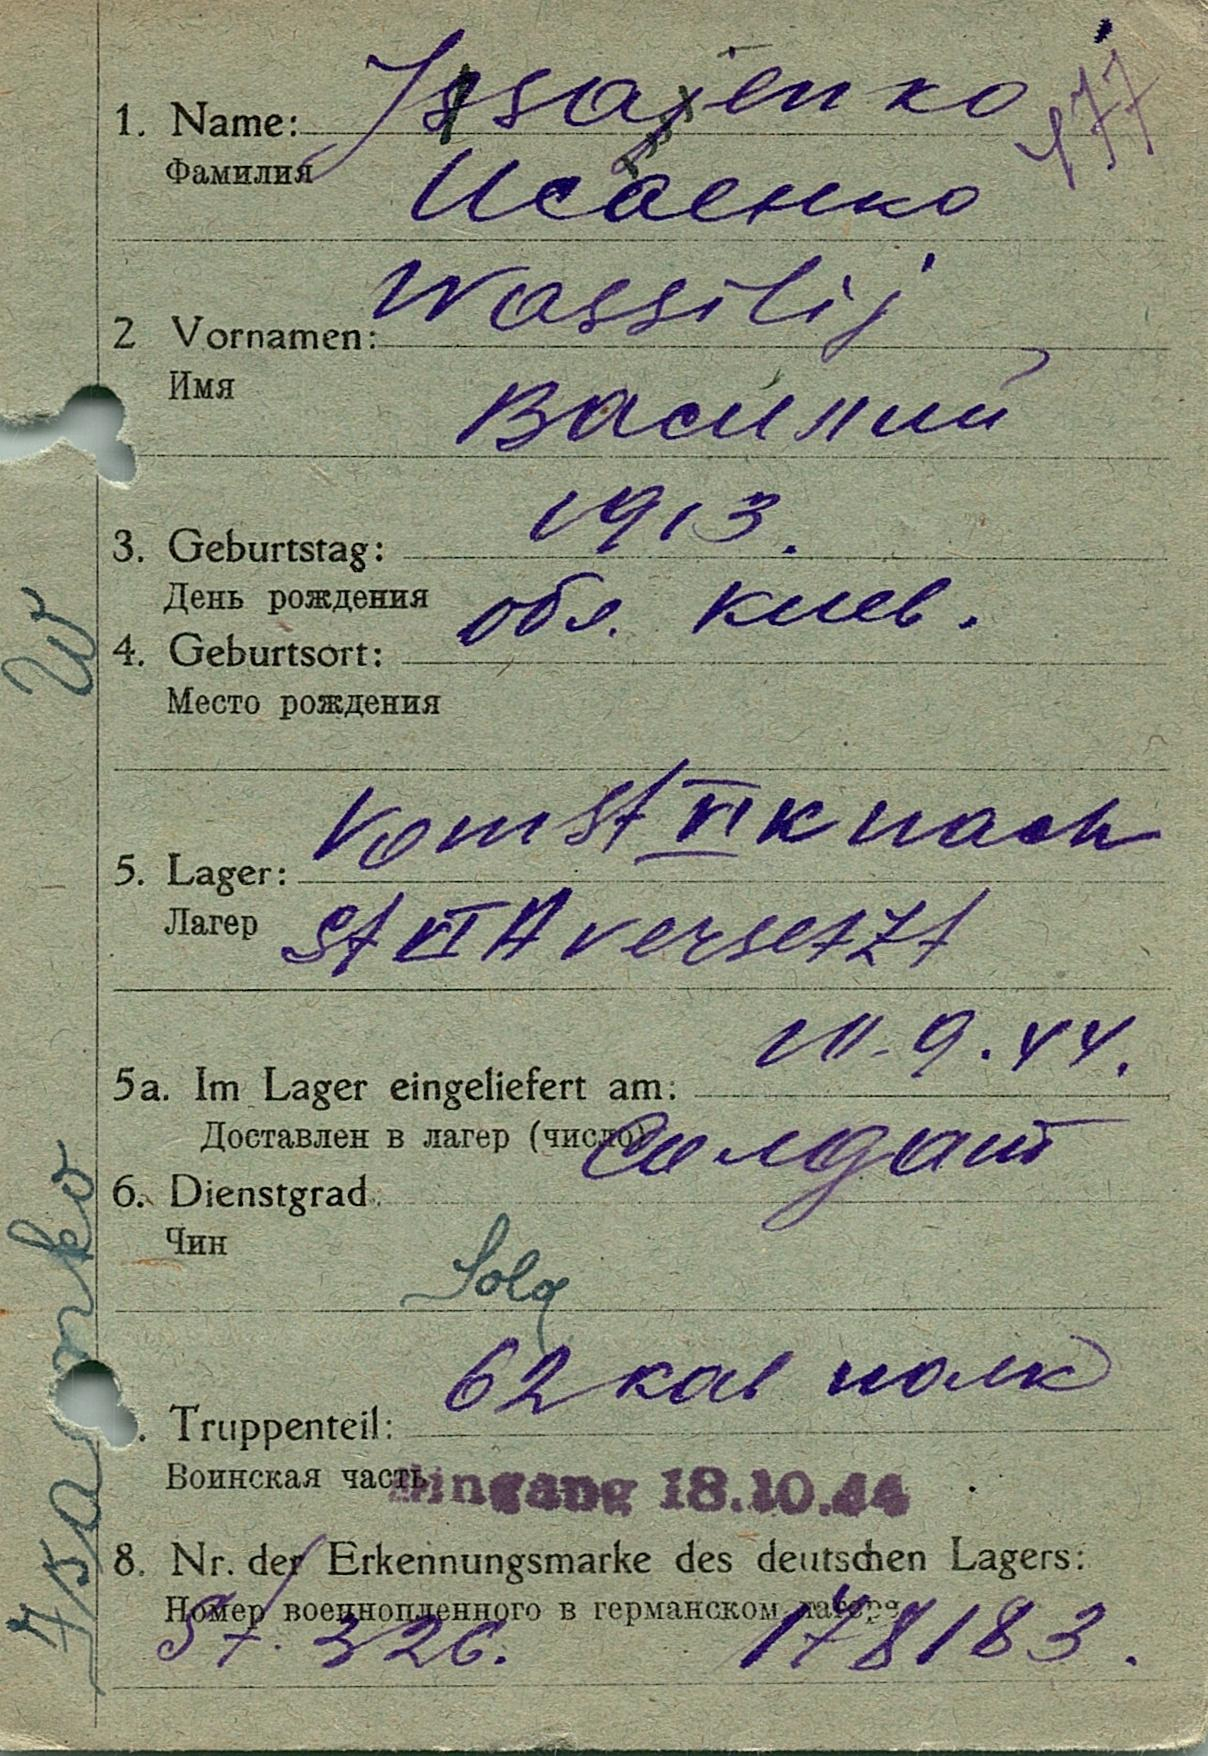 Issajenko
177
1. Name:
Фамилия
Исаенко
Wassilij
2 Vornamen:
Имя
Василий
1913.
3. Geburtstag:
День рождения
обл. Киев.
4. Geburtsort:
Место рождения
W
Vom St VI K nach
5. Lager:
Лагер
St VI A versetzt
111. 9. 44.
5a. Im Lager eingeliefert am:
Доставлен в лагер (число)
Солдат
6. Dienstgrad
Чин
Sold
62 кав полк
. Truppenteil:
Воинская часть
Eingang 18.10.44
8. Nr. der Erkennungsmarke des deutschen Lagers:
Номер военнопленного в германском лагере
St. 326. 178183.